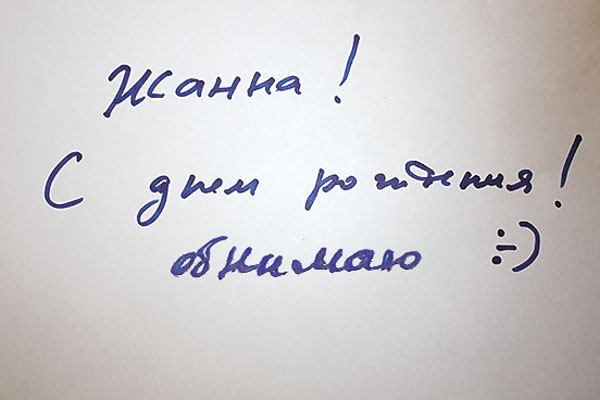 Жанна!
С днем рождения!
обнимаю :-)